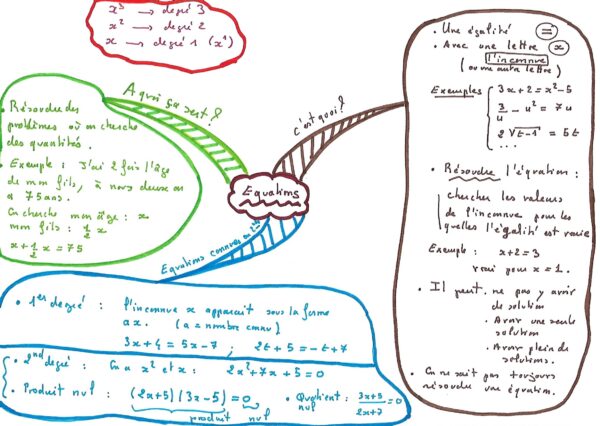 x³ → degré 3
x² → degré 2
x → degré 1 (x¹)
A quoi ça sert ?
• Résoudre des
problèmes où on cherche
des quantités.
• Exemple : J'ai 2 fois l'âge
de mon fils, à nous deux on
a 75 ans.
On cherche mon âge : x
mon fils : 1/2 x
x + 1/2 x = 75
Equations
c'est quoi ?
• Une égalité =
• Avec une lettre x
l'inconnue
(ou une autre lettre)
Exemples
3x + 2 = x² - 5
3/u - u² = 7u
2√t-1 = 5t
...
• Résoudre l'équation :
chercher les valeurs
de l'inconnue pour les
quelles l'égalité est vraie
Exemple : x + 2 = 3
vrai pour x = 1.
• Il peut . ne pas y avoir
de solution
. Avoir une seule
solution
. Avoir plein de
solutions.
• On ne sait pas toujours
résoudre une équation.
Equations connues en 2nde
• 1er degré : l'inconnue x apparait sous la forme
ax. (a = nombre connu)
3x + 4 = 5x - 7 ; 2t + 5 = -t + 7
• 2nd degré : On a x² et x : 2x² + 7x + 5 = 0
• Produit nul : (2x+5)(3x-5) = 0
produit nul
• Quotient : 3x+5/2x+7 = 0
nul